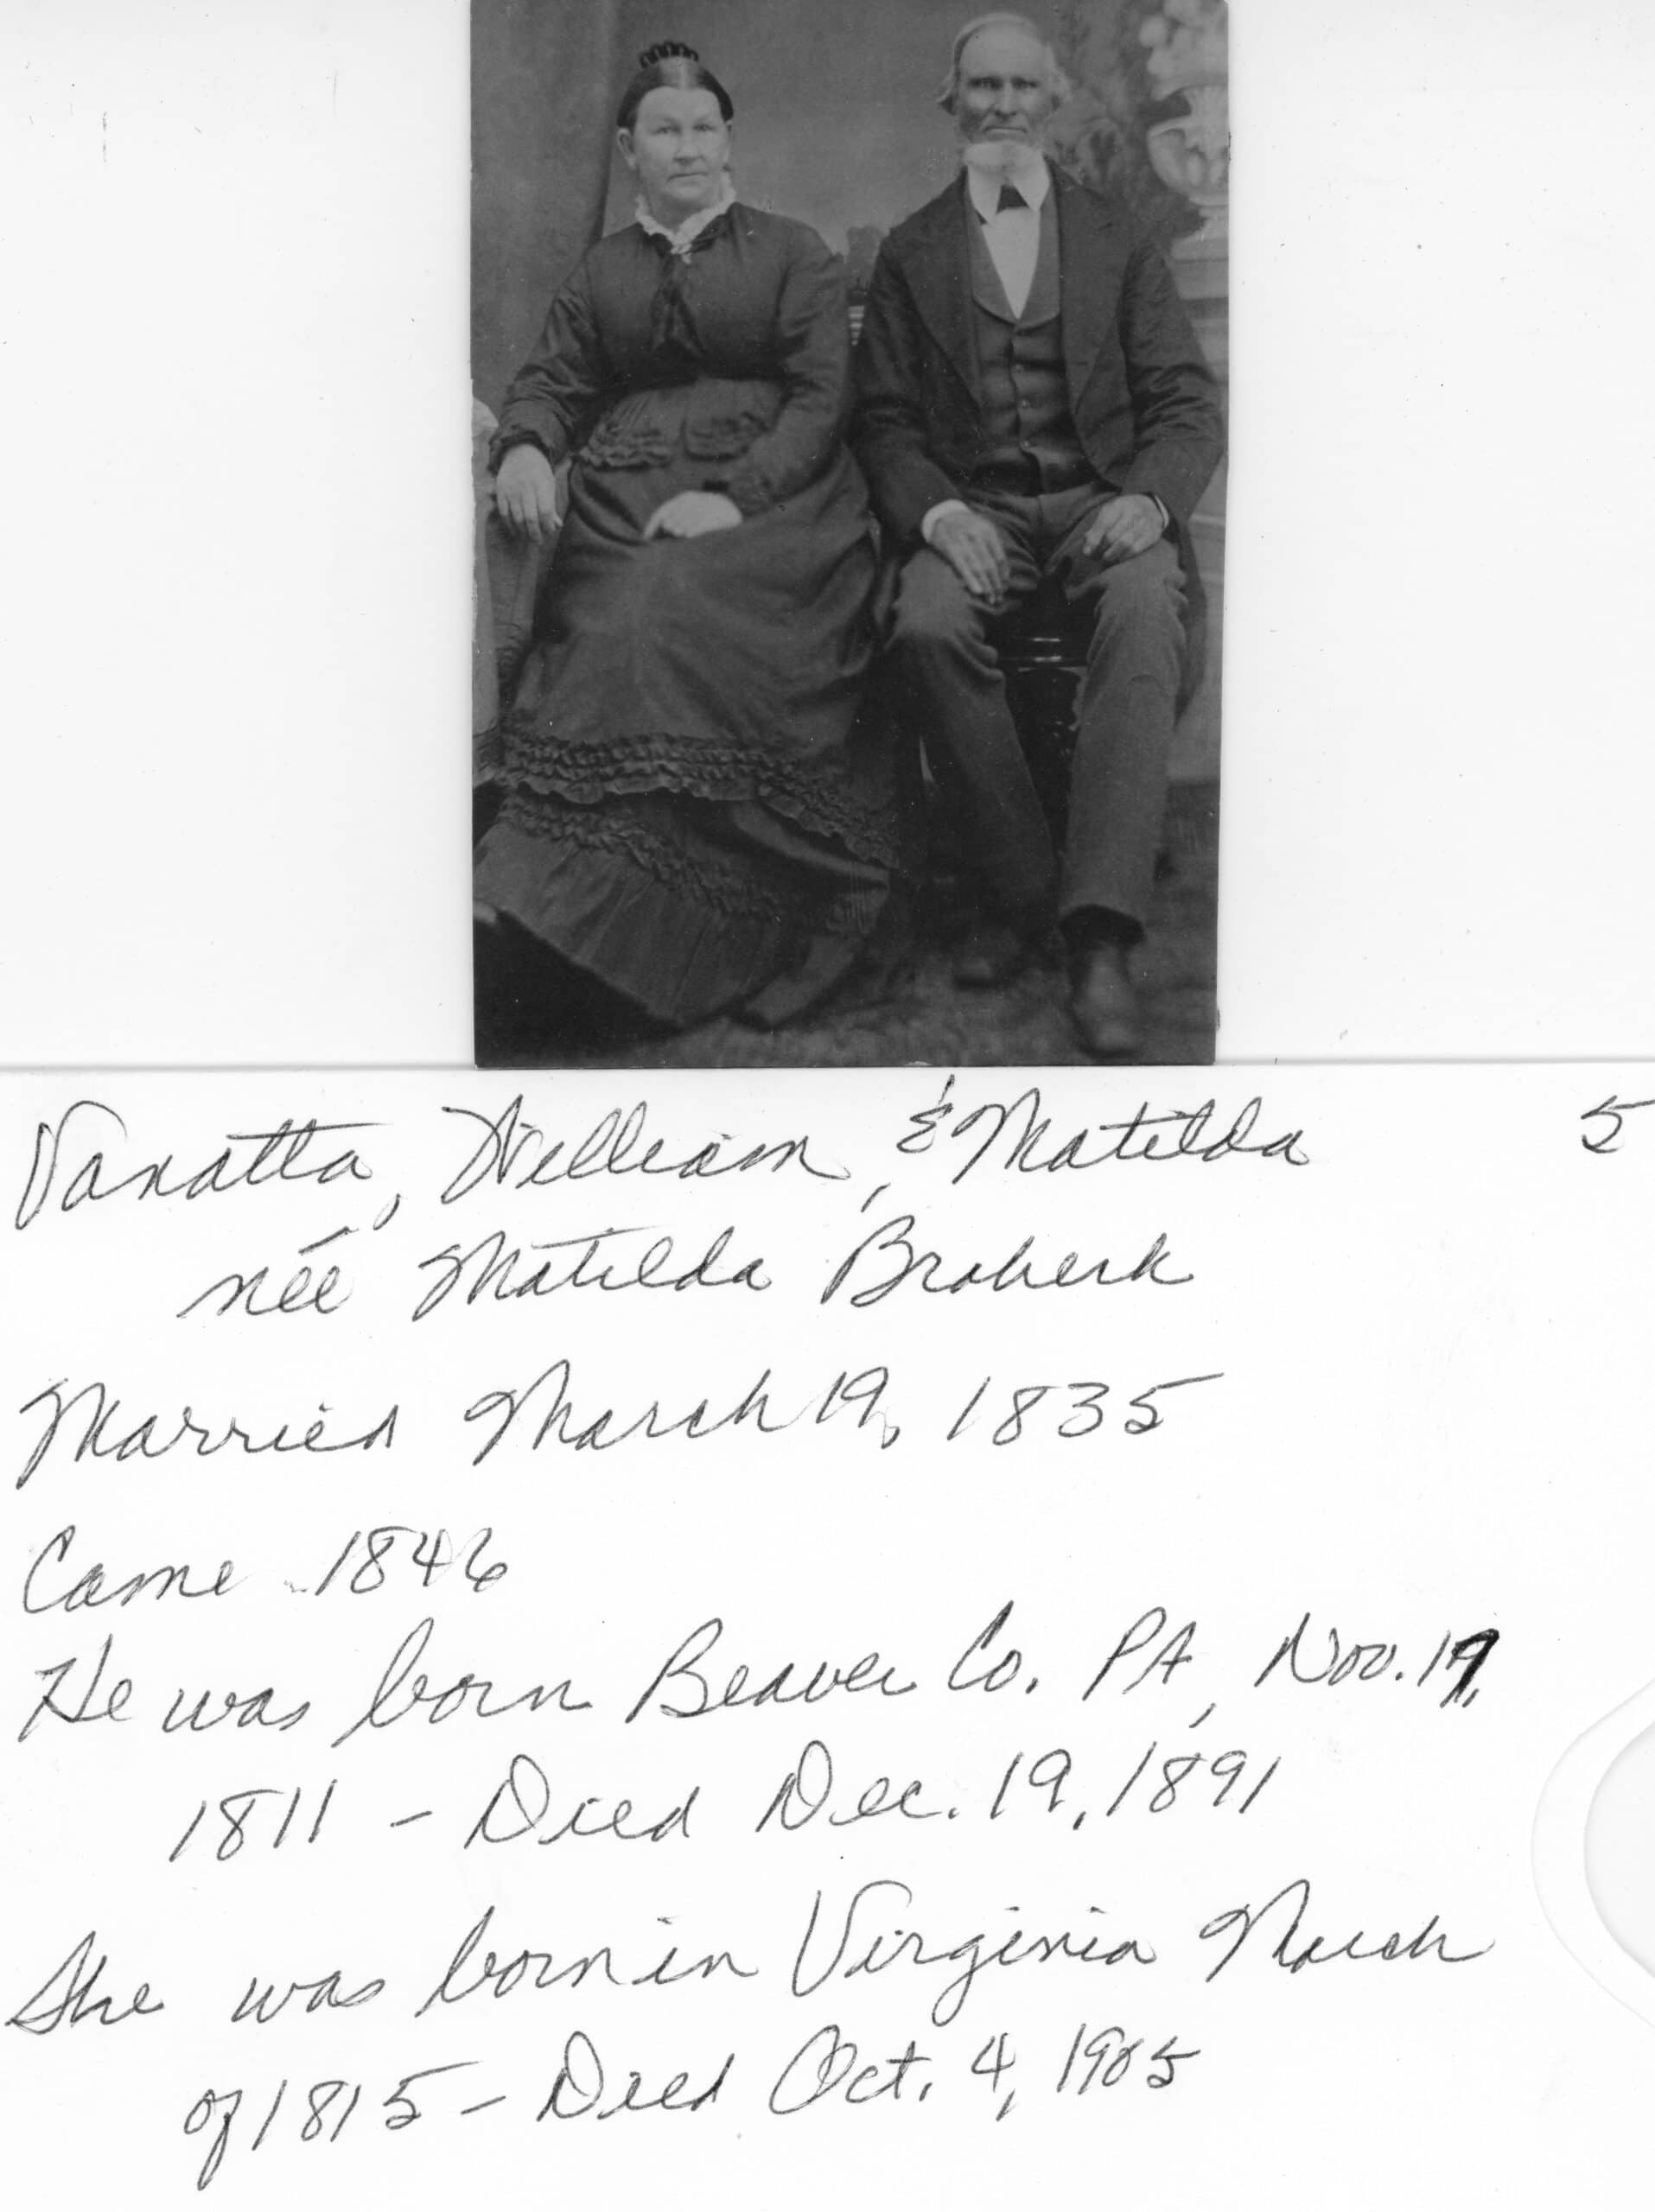 Vanatta, William, & Matilda 5
née Matilda Braherk
Married March 19, 1835
Came 1846
He was born Beaver Co. PA, Nov. 19,
1811 - Died Dec. 19, 1891
She was born in Virginia March
of 1815 - Died Oct. 4, 1905